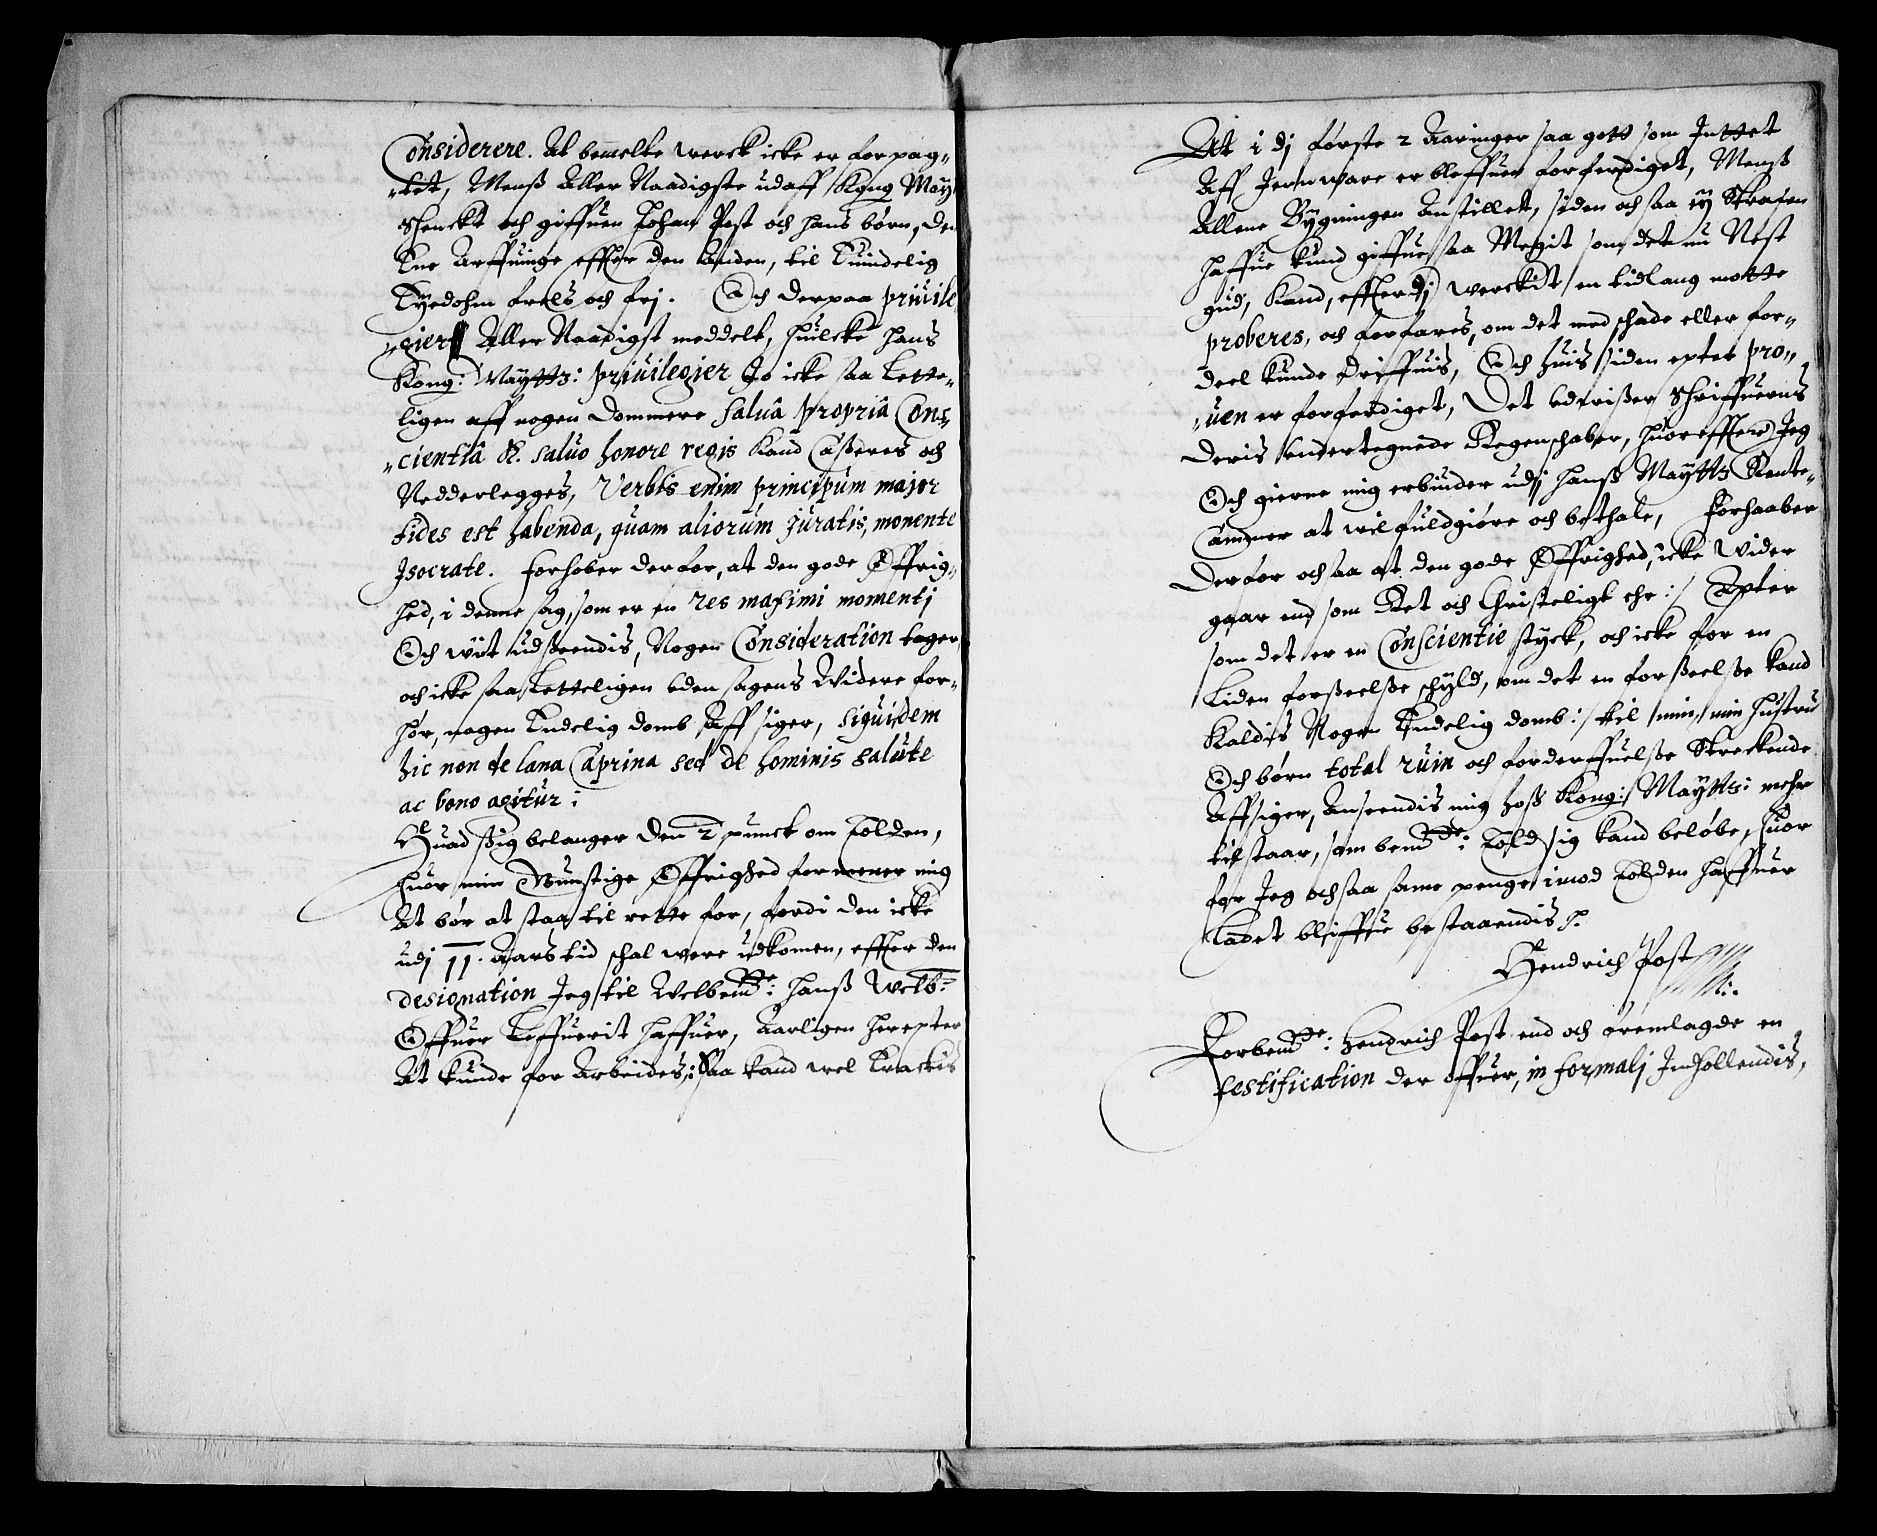 Considerere. At bemelte werck icke er forpag-
-tet, Menß Aller Naadigste udaff Kong May
Schenckt och giffuen Johan Post och hans børn, den
Ene Arffuinge effter den Anden, til Euindelig
Eyedohm frels och frj. Och derpaa priuile
-gier Aller Naadigst meddelt, huilcke hans
Kong: Maytts: priuilegier Jo icke saa Lette-
ligen aff nogen dommere salua propriâ Cons-
-cientiâ &. saluo honore regis kand Caßeres och
Nedderlegges, Verbis enim principum major
fides est habenda, quam aliorum juratis, monente
Isocrate. Forhober derfor, at den gode Øffrig-
hed, i denne sag, som er en res maximi momentj
Och wiit udseendis, Nogen Consideration tager
och icke saa Letteligen uden sagens Widere for-
hør, nogen Endelig domb Aff siger, siquidem
hic non de lana Caprina sed de hominis salute
ac bono agitur:
Huad sig belanger den 2 punct om Tolden,
huor min Gunstige Øffrighed formener mig
At bør at staa til rette for, fordi den icke
udj 11. Aars tid schal were udkomen, effter den
designation Jeg til Welbemte: Hanß Welb:
Offuer Leffuerit haffuer, Aarligen her epter
At kunde for Arbeides: Saa kand wel Erachtis
At i dj første 2 Aaringer saa gott som Inttet
Aff Jernware er bleffuen forferdiget, Menß
Allene Bygningen Anstillet, siden och saa ey Strax en
haffue kund giffue saa Megit som det nu Nest
gud, kand, effterdj werckit en tidlang motte
proberes, och forfares, om det med schade eller for-
deel kunde driffuis, Och huis siden epter pro-
-uen er forferdiget, Det udwißer Schriffuerens
deris undertegnede Regenschaber, huor effter Jeg
Och gierne mig erbiuder udj Hanß Maytts Rente-
Cammer at wil fuldgiøre och bethale, Forhaaber
derfor och saa at den gode Øffrighed, icke wider
gaar end som Ret och Christeligt ehr :/ Epter
som det er en Conscientie styck, och icke for en
Liden forseelße schyld, om det en forseelße kand
Kaldis Nogen Endelig domb :/ til min, min Hustru
Och børn total ruin och forderffuelße Streckende
Affsiger, Anseendis mig hoß Kong: Maytts: mehr
til staar, som bemte: Told sig kand beløbe, huor
for Jeg och saa samme penge imod Tolden haffuer
Ladet bliffue bestaaendis ?.
Hendrich Post
Forbemte: Hendrich Post end och øremlagde en
testification der offuer, in formalj Indhollendis,